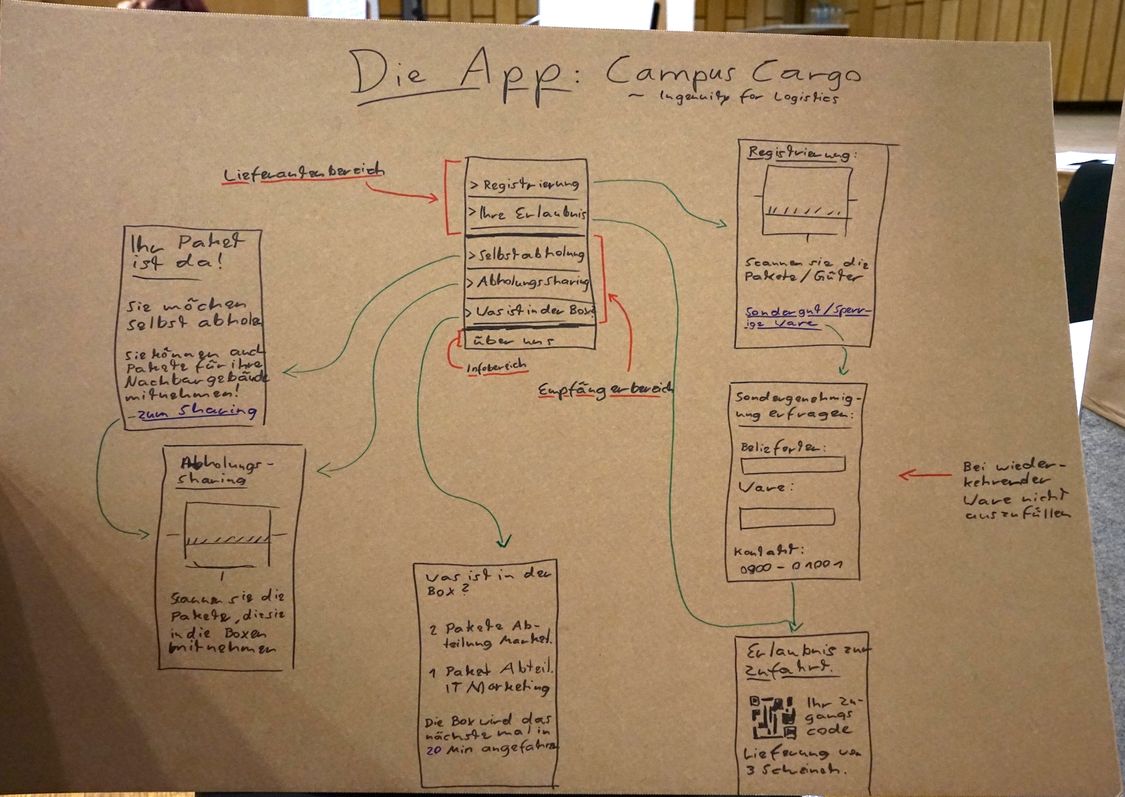 Die App: Campus Cargo
~ Ingenuity for Logistics
Lieferantenbereich
> Registrierung
> Ihre Erlaubnis
> Selbstabholung
> AbholungsSharing
> Was ist in der Box?
über uns
Infobereich
Empfängerbereich
Ihr Paket
ist da!
Sie möchen
selbst abholen
Sie können auch
Pakete für ihre
Nachbargebäude
mitnehmen!
- zum Sharing
Abholungs-
sharing
Scannen sie die
Pakete, die sie
in die Boxen
mitnehmen
Was ist in der
Box?
2 Pakete Ab-
teilung Market.
1 Paket Abteil.
IT Marketing
Die Box wird das
nächste mal in
20 Min angefahren
Registrierung:
Scannen sie die
Pakete/Güter
Sondergut/Sperr-
ige Ware
Sondergenehmig-
ung erfragen:
Belieferten:
Ware:
Kontakt:
0900 - 01001
Bei wieder-
kehrender
Ware nicht
auszufüllen
Erlaubnis zur
Zufahrt.
Ihr Zu-
gangs
code
Lieferung von